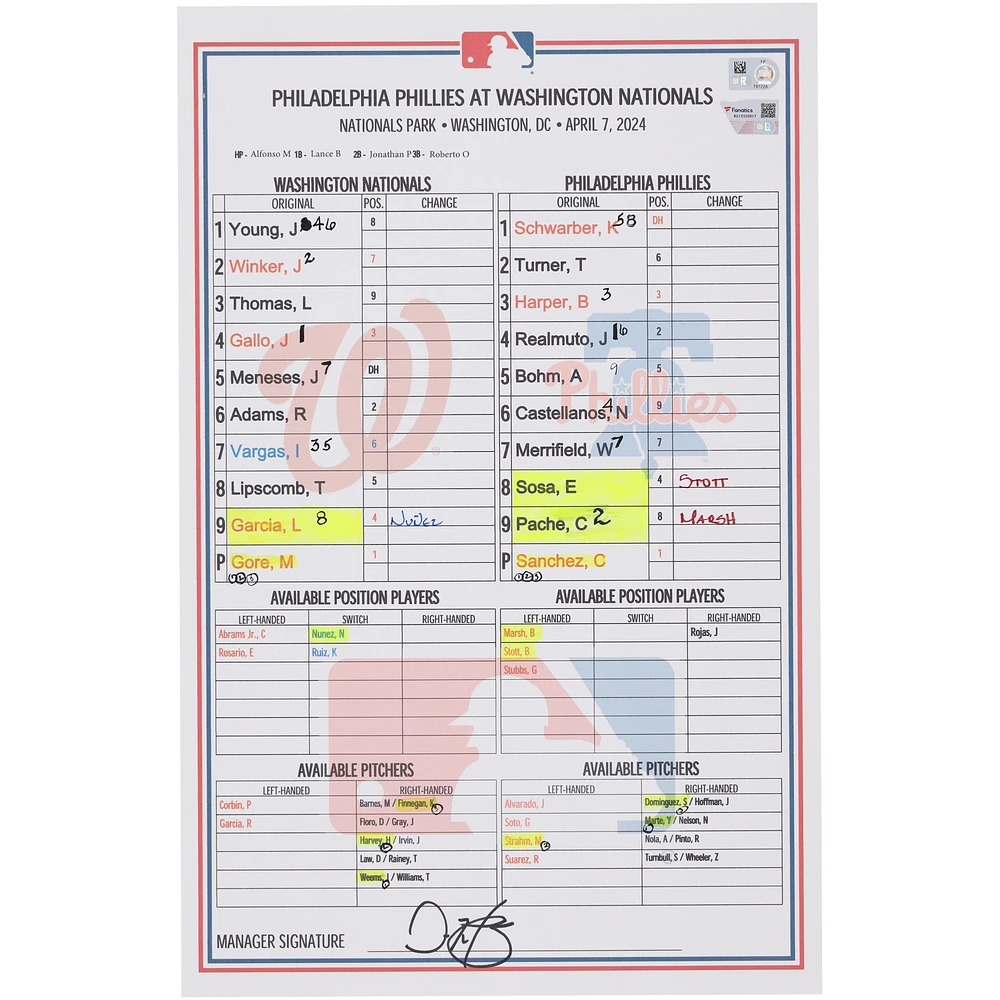 PHILADELPHIA PHILLIES AT WASHINGTON NATIONALS
NATIONALS PARK • WASHINGTON, DC • APRIL 7, 2024
Fanatics
HP- Alfonso M 1B- Lance B 2B- Jonathan P 3B- Roberto O
WASHINGTON NATIONALS
ORIGINAL POS. CHANGE
1 Young, J 46 8
2 Winker, J 2 7
3 Thomas, L 9
4 Gallo, J 1 3
5 Meneses, J 7 DH
6 Adams, R 2
7 Vargas, I 35 6
8 Lipscomb, T 5
9 Garcia, L 8 4 Nuñez
P Gore, M 1
PHILADELPHIA PHILLIES
ORIGINAL POS. CHANGE
1 Schwarber, K 58 DH
2 Turner, T 6
3 Harper, B 3 3
4 Realmuto, J 16 2
5 Bohm, A 9 5
6 Castellanos, N 4 9
7 Merrifield, W 7 7
8 Sosa, E 4 STOTT
9 Pache, C 2 8 MARSH
P Sanchez, C 1
Phillies
AVAILABLE POSITION PLAYERS
LEFT-HANDED SWITCH RIGHT-HANDED
Abrams Jr., C Nunez, N
Rosario, E Ruiz, K
AVAILABLE POSITION PLAYERS
LEFT-HANDED SWITCH RIGHT-HANDED
Marsh, B Rojas, J
Stott, B
Stubbs, G
AVAILABLE PITCHERS
LEFT-HANDED RIGHT-HANDED
Corbin, P Barnes, M / Finnegan, K
Garcia, R Floro, D / Gray, J
Harvey, H / Irvin, J
Law, D / Rainey, T
Weems, J / Williams, T
AVAILABLE PITCHERS
LEFT-HANDED RIGHT-HANDED
Alvarado, J Dominguez, S / Hoffman, J
Soto, G Marte, Y / Nelson, N
Strahm, M Nola, A / Pinto, R
Suarez, R Turnbull, S / Wheeler, Z
MANAGER SIGNATURE